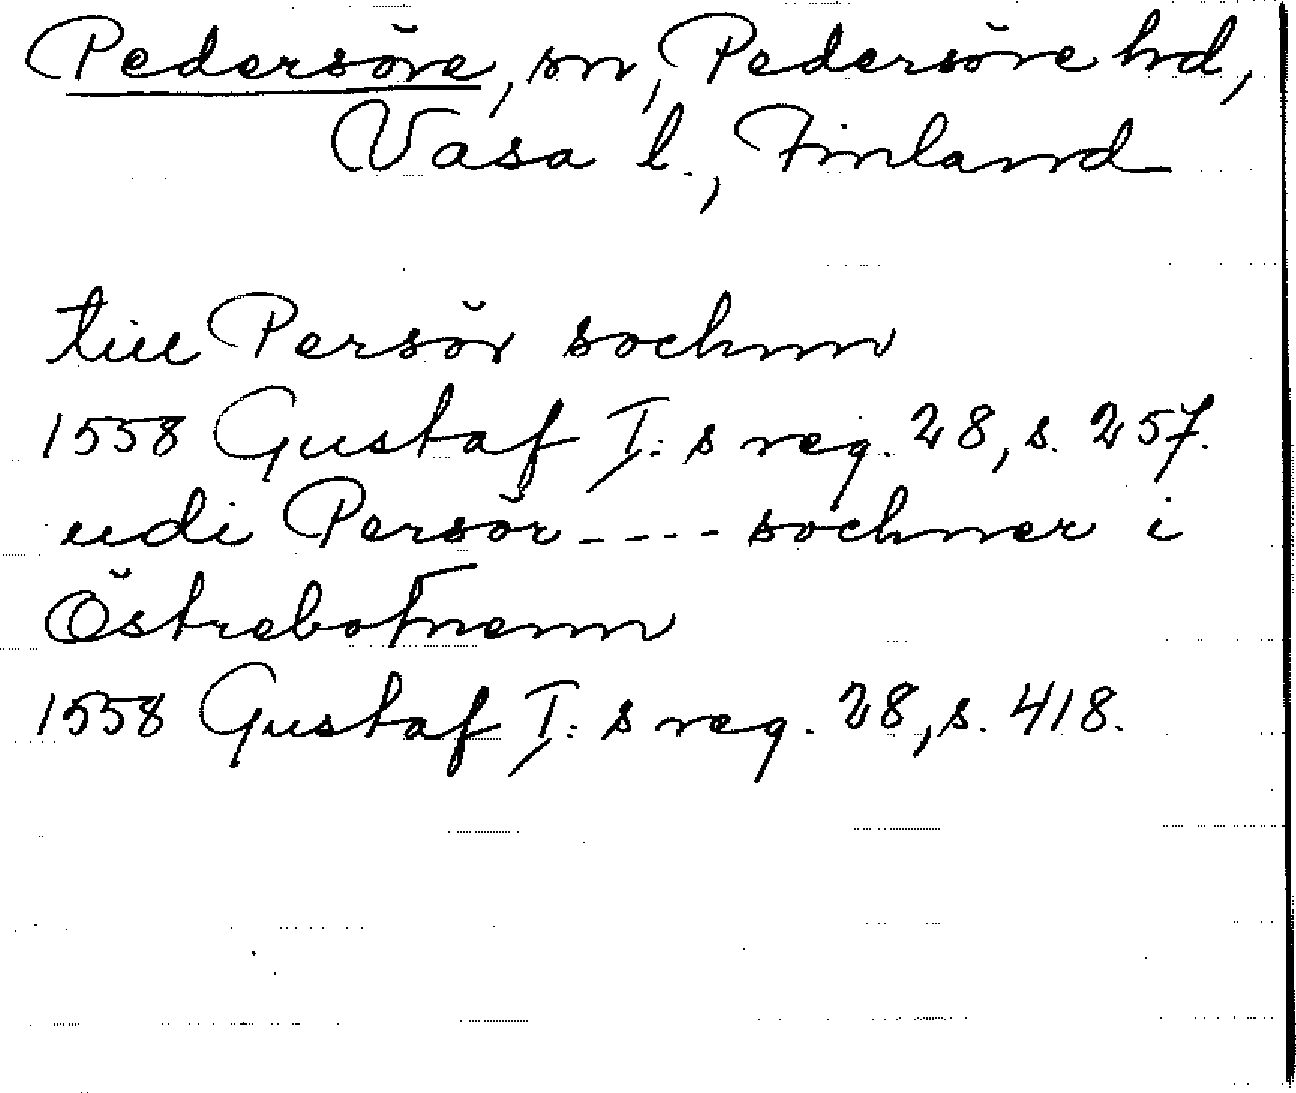 Pedersöre, sn, Pedersöre hd,
Vasa l., Finland
till Persör sochnn
1558 Gustaf I:s reg. 28, s. 257.
udi Persör ---- sochner i
Östrebotnenn
1558 Gustaf I:s reg. 28, s. 418.